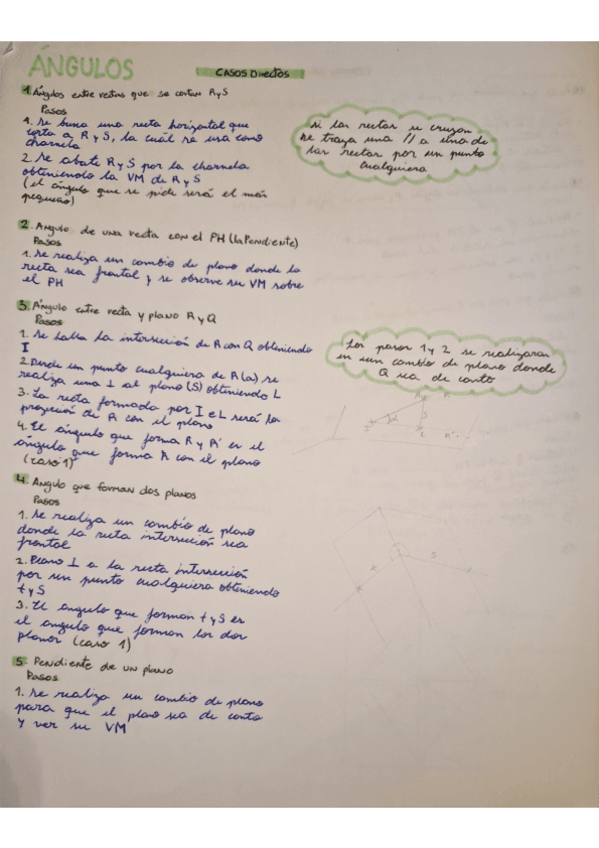 ANGULOS
CASOS DIRECTOS
1. Ángulos entre rectas que se cortan R y S
Pasos
1. Se busca una recta horizontal que
corta a R y S, la cuál se usa como
charnela
2. Se abate R y S por la charnela
obteniendo la VM de R y S
(el ángulo que se pide será el más
pequeño)
Si las rectas se cruzan
se traza una // a una de
las rectas por un punto
cualquiera
2. Angulo de una recta con el PH (la Pendiente)
Pasos
1. Se realiza un cambio de plano donde la
recta sea frontal y se observe su VM sobre
el PH
3. Ángulo entre recta y plano R y Q
Pasos
1. Se halla la intersección de R con Q obteniendo
I
2. Desde un punto cualquiera de R (a) se
realiza una ⊥ al plano (S) obteniendo L
3. La recta formada por I e L será la
proyeción de R con el plano
4. El ángulo que forma R y R' es el
ángulo que forma R con el plano
(caso 1)
Los pasos 1 y 2 se realizaran
en un cambio de plano donde
Q sea de canto
4. Angulo que forman dos planos
Pasos
1. Se realiza un cambio de plano
donde la recta intersección sea
frontal
2. Plano ⊥ a la recta intersección
por un punto cualquiera obteniendo
t y S
3. El angulo que forman t y S es
el angulo que forman los dos
planos (caso 1)
5. Pendiente de un plano
Pasos
1. Se realiza un cambio de plano
para que el plano sea de canto
y ver su VM